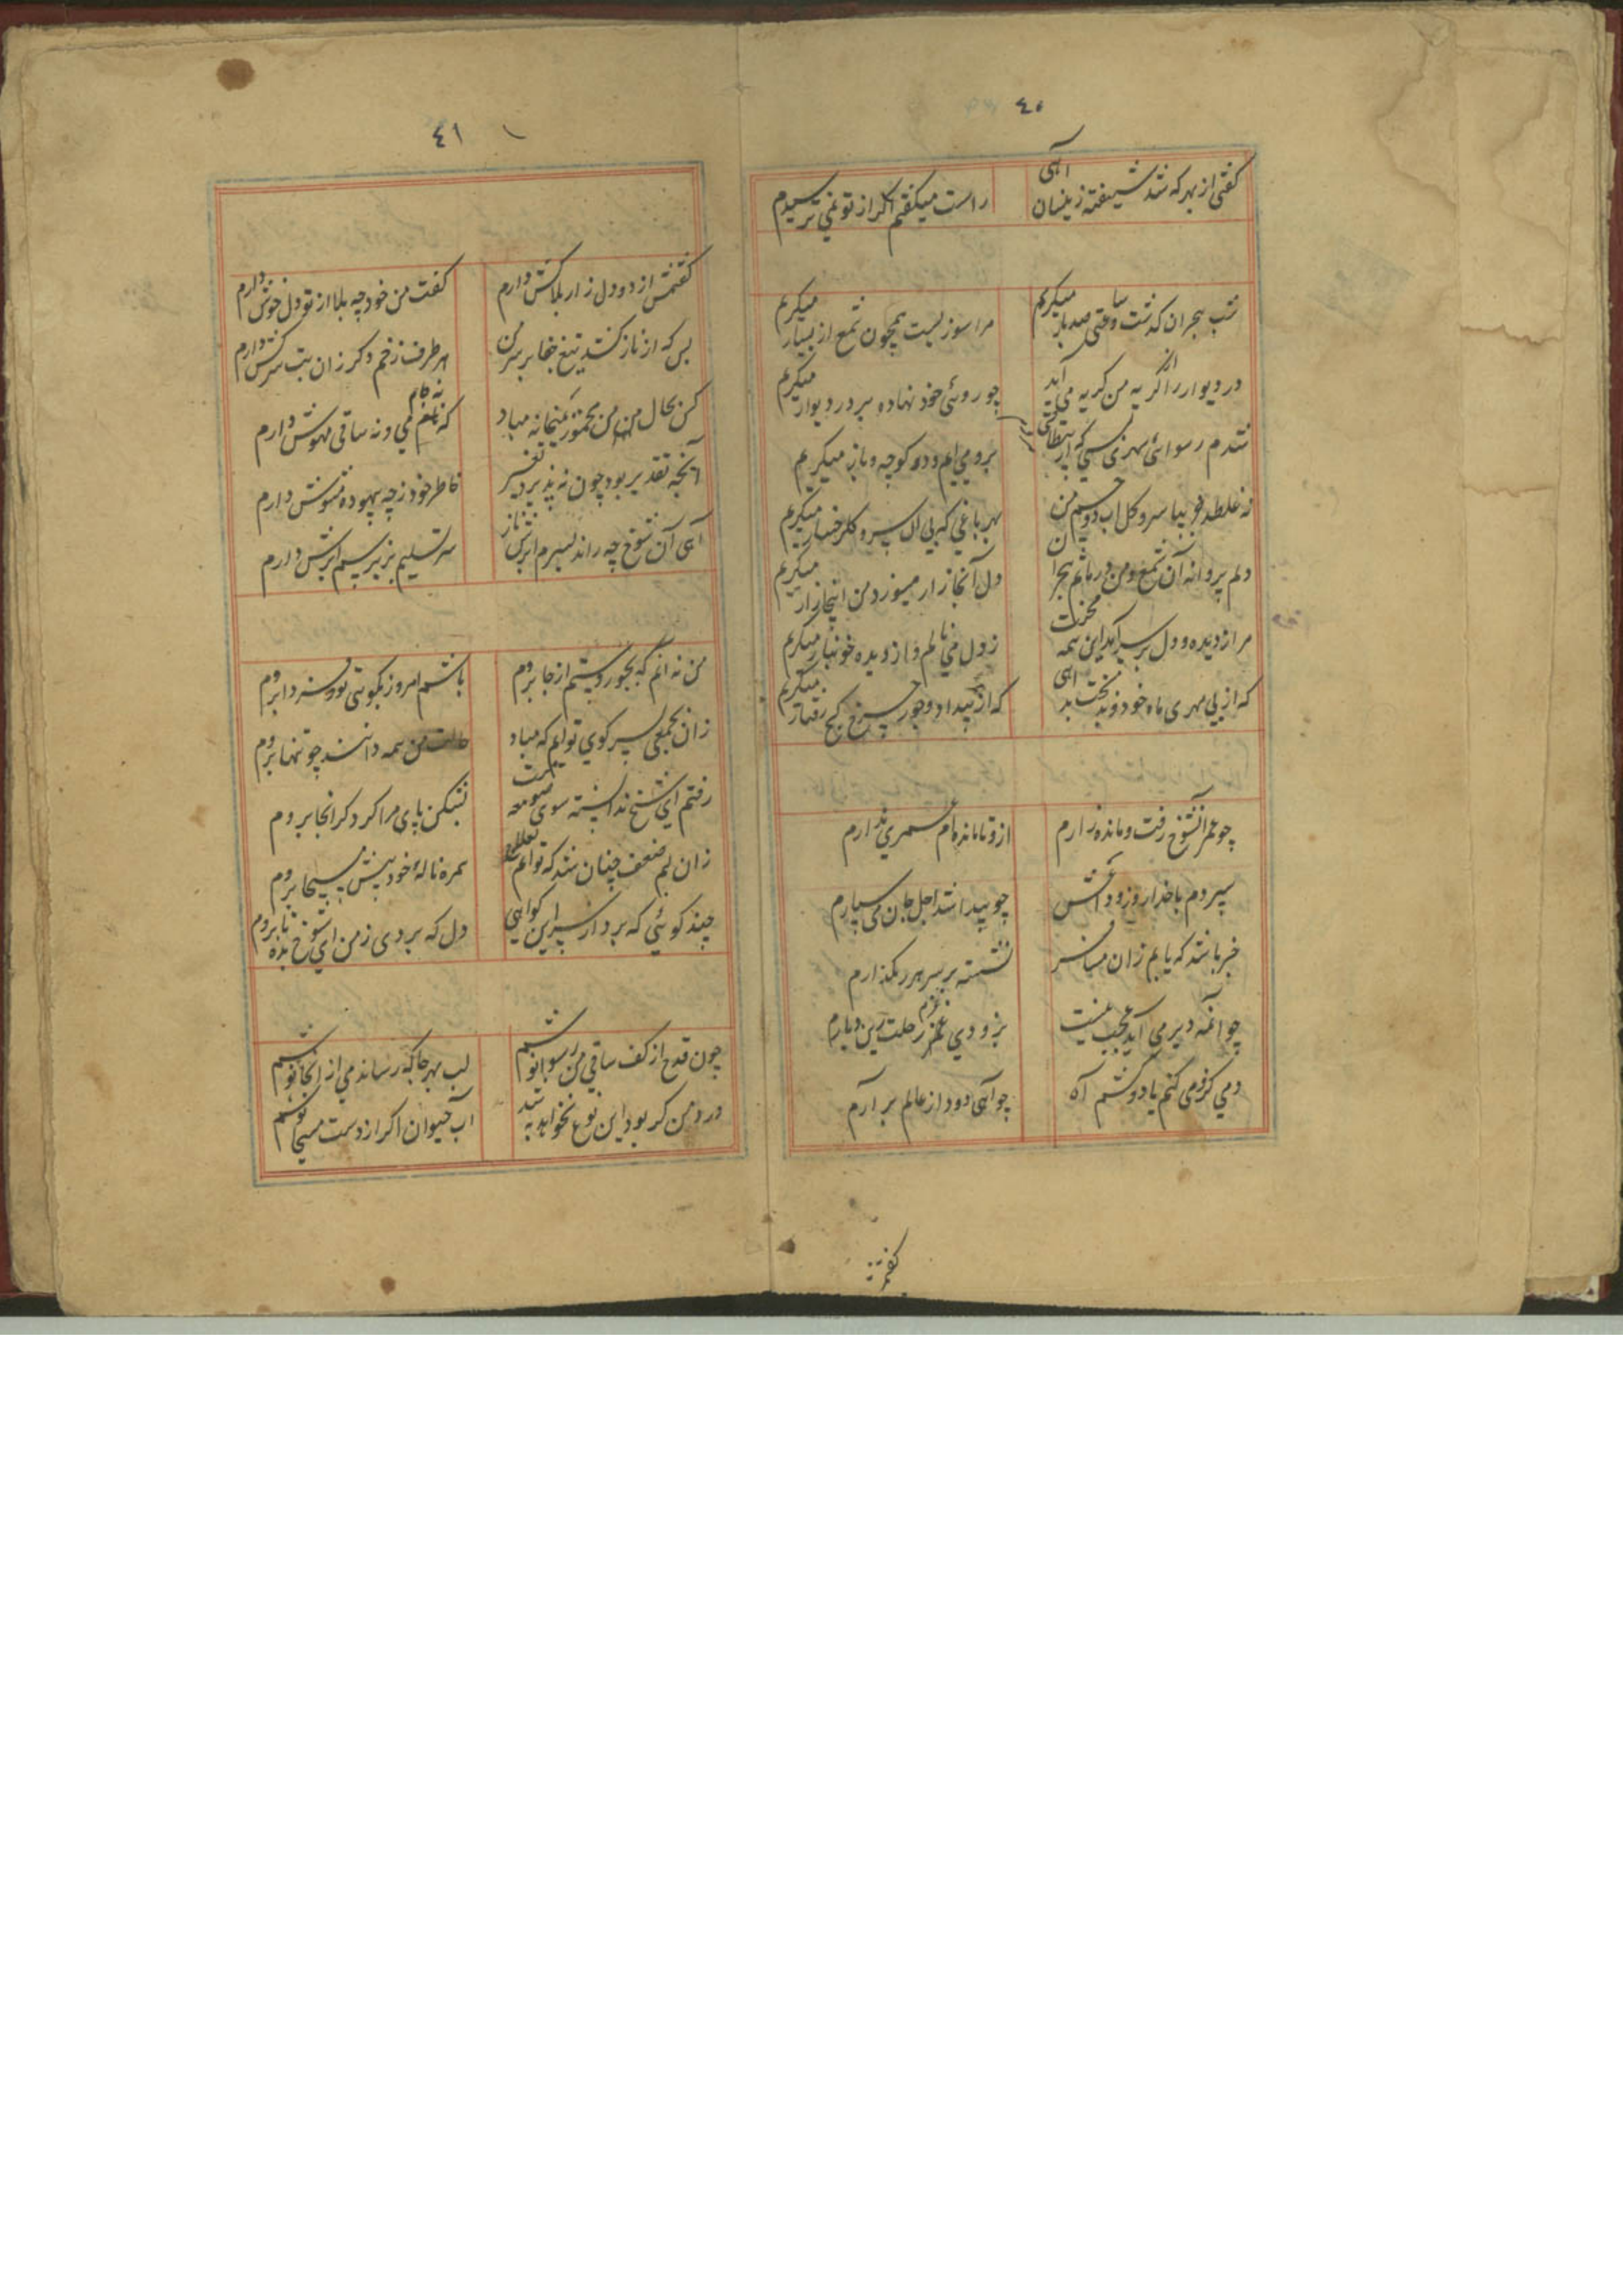 ٤٠
گفتی از بهر که شد شیفته زینسان آهی
راست میگفتم اگر از تو نمی ترسیدم
شب هجران گذشت و ساعتی صد بار میگریم
مرا سوزیست همچون شمع از بسیار میگریم
در و دیوار را از گریه من گریه می آید
چو روئی خود نهاده بر در و دیوار میگریم
شدم رسوائی شهری کسی کز بیطاقتی
برو می آیم و در کوچه و بازار میگریم
نه غلطد خو بپا سرو و گل آب دو چشم من
بهر باغی که بی آن سرو گلرخسار میگریم
دلم پروانه آن شمع و من در ماتم هجران
دل آنجا زار میسوزد من اینجا زار میگریم
مرا از دیده و دل بر سر آید این همه محنت
ز دل می نالم و از دیده خونبار میگریم
که از بی مهری ماه خود و بخت بد آهی
که از بیداد و جور چرخ کج رفتار میگریم
چو عمر آنشوخ رفت و مانده زارم
ازو تا مانده ام عمری ندارم
سپردم با خدا روز وداعش
چو پیدا شد اجل جان می سپارم
خبر باشد که یابم زان مسافر
نشسته بر سر هر رهگذارم
چو آنمه دیر می آید عجب نیست
بزودی عزم رحلت زین دیارم
دمی کز وی کنم یاد و کشم آه
چو آهی دود از عالم بر آرم
٤١
گفتمش از دو دل زار بلاکش دارم
گفت من خود چه بلا از تو دل خوش دارم
بس که از ناز کشد تیغ جفا بر سر من
هر طرف زخم دگر زان بت سرکش دارم
که نه جام می و نه ساقی مهوش دارم
آنچه تقدیر بود چون نه پذیرد تغییر
خاطر خود ز چه بیهوده مشوش دارم
آهی آن شوخ چه راند بسرم ابرش ناز
سر تسلیم بزیر سم ابرش دارم
من نه آنم که بجور و ستم از جا بروم
باشم امروز بکوی تو و فردا بروم
زان بجمعی بسر کوی تو آیم که مباد
حالت من همه دانند چو تنها بروم
رفتم ای شیخ ندانسته سوی صومعه ات
بشکن پای مرا گر دگر آنجا بروم
زان لبم ضعف چنان شد که توانم
همره ناله خود پیش مسیحا بروم
چند گوئی که برو از سر این کو آهی
دل که بردی ز من ای شوخ بده تا بروم
چون قدح از کف ساقی من رسوا نوشم
لب بهر جا که رساند می از آنجا نوشم
درد من گر بود این نوع نخواهد به شد
آب حیوان اگر از دست مسیحا نوشم
گفتمش